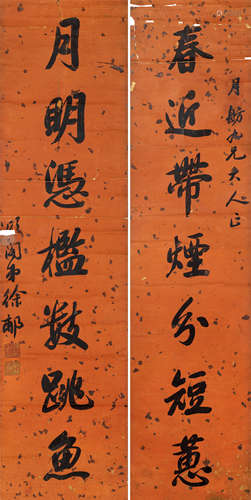 春近帶煙分短蕙
月舫九兄大人正
月明憑檻數跳魚
頌閣弟徐郙